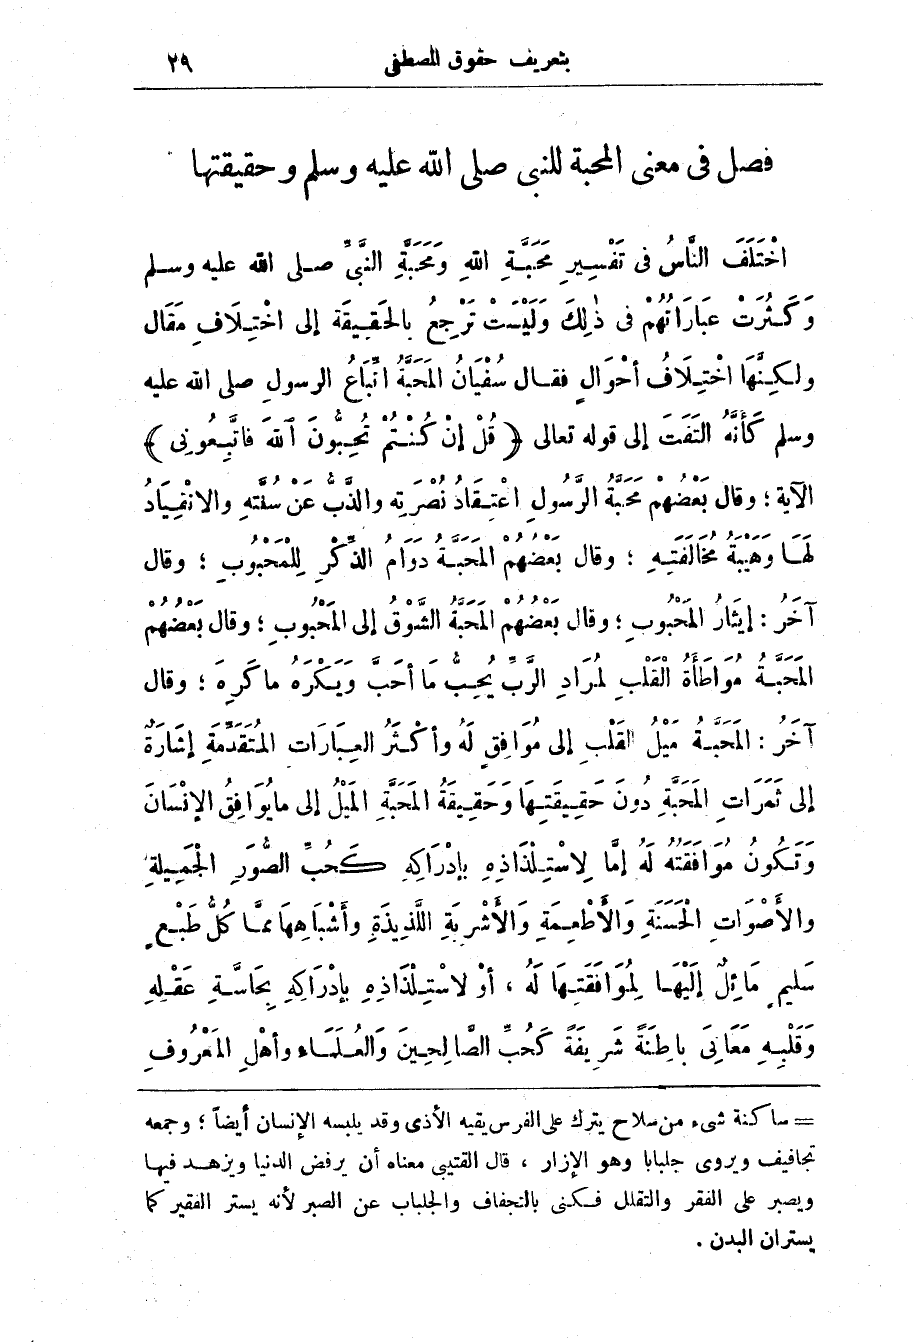 بتعريف حقوق المصطفى ٢٩
فصل فى معنى المحبة للنبى صلى الله عليه وسلم وحقيقتها
اخْتَلَفَ النَّاسُ فى تَفْسِيرِ مَحَبَّةِ اللهِ وَمَحَبَّةِ النَّبِىِّ صلى الله عليه وسلم
وَكَثُرَتْ عِبَارَاتُهُمْ فى ذٰلِكَ وَلَيْسَتْ تَرْجِعُ بالحَقِيقَةِ إلى اخْتِلَافِ مَقَال
ولكِنَّهَا اخْتِلَافُ أحْوَالٍ فقال سُفْيَانُ المَحَبَّةُ اتِّبَاعُ الرسولِ صلى الله عليه
وسلم كَأنَّهُ التَفَتَ إلى قوله تعالى ﴿ قُلْ إنْ كُنْتُمْ تُحِبُّونَ ٱللهَ فاتَّبِعُونِى ﴾
الآية ؛ وقال بَعْضُهُمْ مَحَبَّةُ الرَّسُولِ اعْتِقَادُ نُصْرَتِهِ والذَّبُّ عَنْ سُنَّتِهِ والانْقِيَادُ
لَهَا وَهَيْبَةُ مُخَالَفَتِهِ ؛ وقال بَعْضُهُمْ المَحَبَّةُ دَوَامُ الذِّكْرِ لِلْمَحْبُوبِ ؛ وقال
آخَرُ : إيثَارُ المَحْبُوبِ ؛ وقال بَعْضُهُمْ المَحَبَّةُ الشَّوْقُ إلى المَحْبُوبِ ؛ وقال بَعْضُهُمْ
المَحَبَّةُ مُوَاطَأَةُ القَلْبِ لمُرَادِ الرَّبِّ يُحِبُّ مَا أحَبَّ وَيَكْرَهُ ما كَرِهَ ؛ وقال
آخَرُ : المَحَبَّةُ مَيْلُ القَلْبِ إلى مُوَافِقٍ لَهُ وأكْثَرُ العِبَارَاتِ المُتَقَدِّمَةِ إشَارَةٌ
إلى ثَمَرَاتِ المَحَبَّةِ دُونَ حَقِيقَتِهَا وَحَقِيقَةُ المَحَبَّةِ المَيْلُ إلى مايُوَافِقُ الإنْسَانَ
وَتَكُونُ مُوَافَقَتُهُ لَهُ إمَّا لاِسْتِلْذَاذِهِ بإدْرَاكِهِ كَحُبِّ الصُّوَرِ الجَمِيلَةِ
والأصْوَاتِ الحَسَنَةِ وَالأَطْعِمَةِ وَالأَشْرِبَةِ اللَّذِيذَةِ وأَشْبَاهِهَا ممَّا كُلُّ طَبْعٍ
سَلِيمٍ مَائِلٌ إلَيْهَا لِمُوَافَقَتِهَا لَهُ ، أوْ لاسْتِلْذَاذِهِ بإدْرَاكِهِ بِحَاسَّةِ عَقْلِهِ
وَقَلْبِهِ مَعَانِىَ باطِنَةً شَرِيفَةً كَحُبِّ الصَّالِحِينَ وَالعُلَمَاءِ وأهْلِ المَعْرُوفِ
= ساكنة شىء من سلاح يترك على الفرس يقيه الأذى وقد يلبسه الإنسان أيضاً ؛ وجمعه
تجافيف ويروى جلبابا وهو الإزار ، قال القتيبى معناه أن يرفض الدنيا ويزهد فيها
ويصبر على الفقر والتقلل فكنى بالتجفاف والجلباب عن الصبر لأنه يستر الفقير كما
يستران البدن .